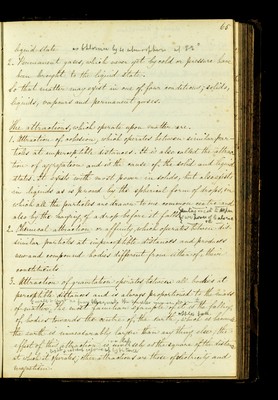 65
liquid state as Chlorine by 4 atmospheres at 32°
2. Permanent gases, which never yet by cold or pressure have
been brought to the liquid state.
So that matter may exist in one of four conditions; solids,
liquids, vapours and permanent gases.
The attractions, which operate upon matter are.
1. Attraction of cohesion, which operates between similar par-
ticles at imperceptible distances. It is also called the attrac
tion of aggregation and is the cause of the solid and liquid
states. It exists with most power in solids, but also exists
in liquids as is proved by the spherical form of drops, on
which all the particles are drawn to one common centre and
also by the hanging of a drop before it falls
2. Chemical attraction or affinity which operates between dis
similar particles at imperceptible distances and produces
new and compound bodies different from either of their
constituents
3. Attraction of gravitation operates between all bodies at
perceptible distances and is always proportioned to the mass
of matter, the most familiar example of it is the falling
of bodies towards the centre of the earth. And as
the earth is immeasurably larger than any thing else, the
effect of this attraction is inversely as the square of the distance
at which it operates, other attractions are those of electricity and
magnetism